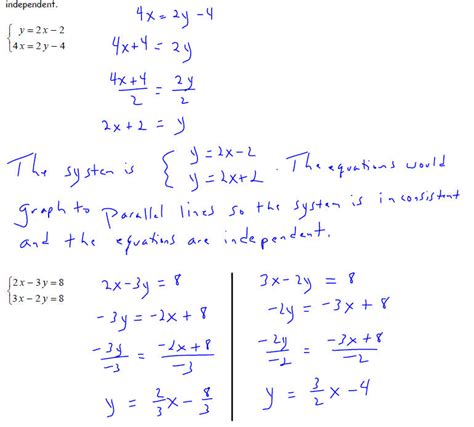 independent.
{ y = 2x − 2
4x = 2y − 4
4x = 2y - 4
4x + 4 = 2y
(4x+4)/2 = 2y/2
2x + 2 = y
The system is { y = 2x - 2
y = 2x + 2 . The equations would
graph to parallel lines so the system is inconsistent
and the equations are independent.
{ 2x − 3y = 8
3x − 2y = 8
2x - 3y = 8
-3y = -2x + 8
-3y/-3 = (-2x + 8)/-3
y = 2/3 x - 8/3
3x - 2y = 8
-2y = -3x + 8
-2y/-2 = (-3x + 8)/-2
y = 3/2 x - 4